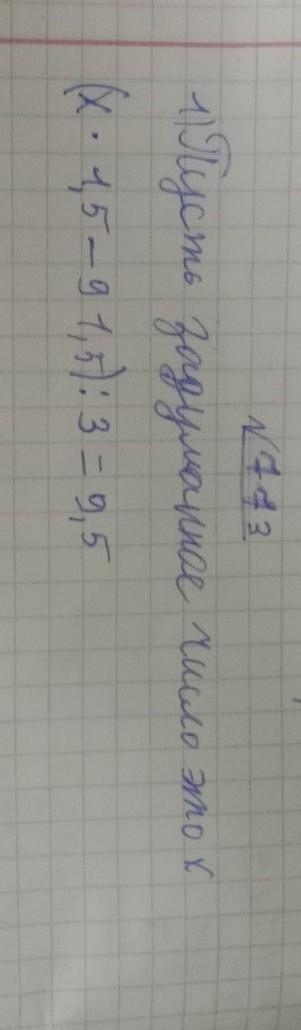 № 773
1) Пусть задуманное число это х
(х · 1,5 – 91,5) : 3 = 9,5